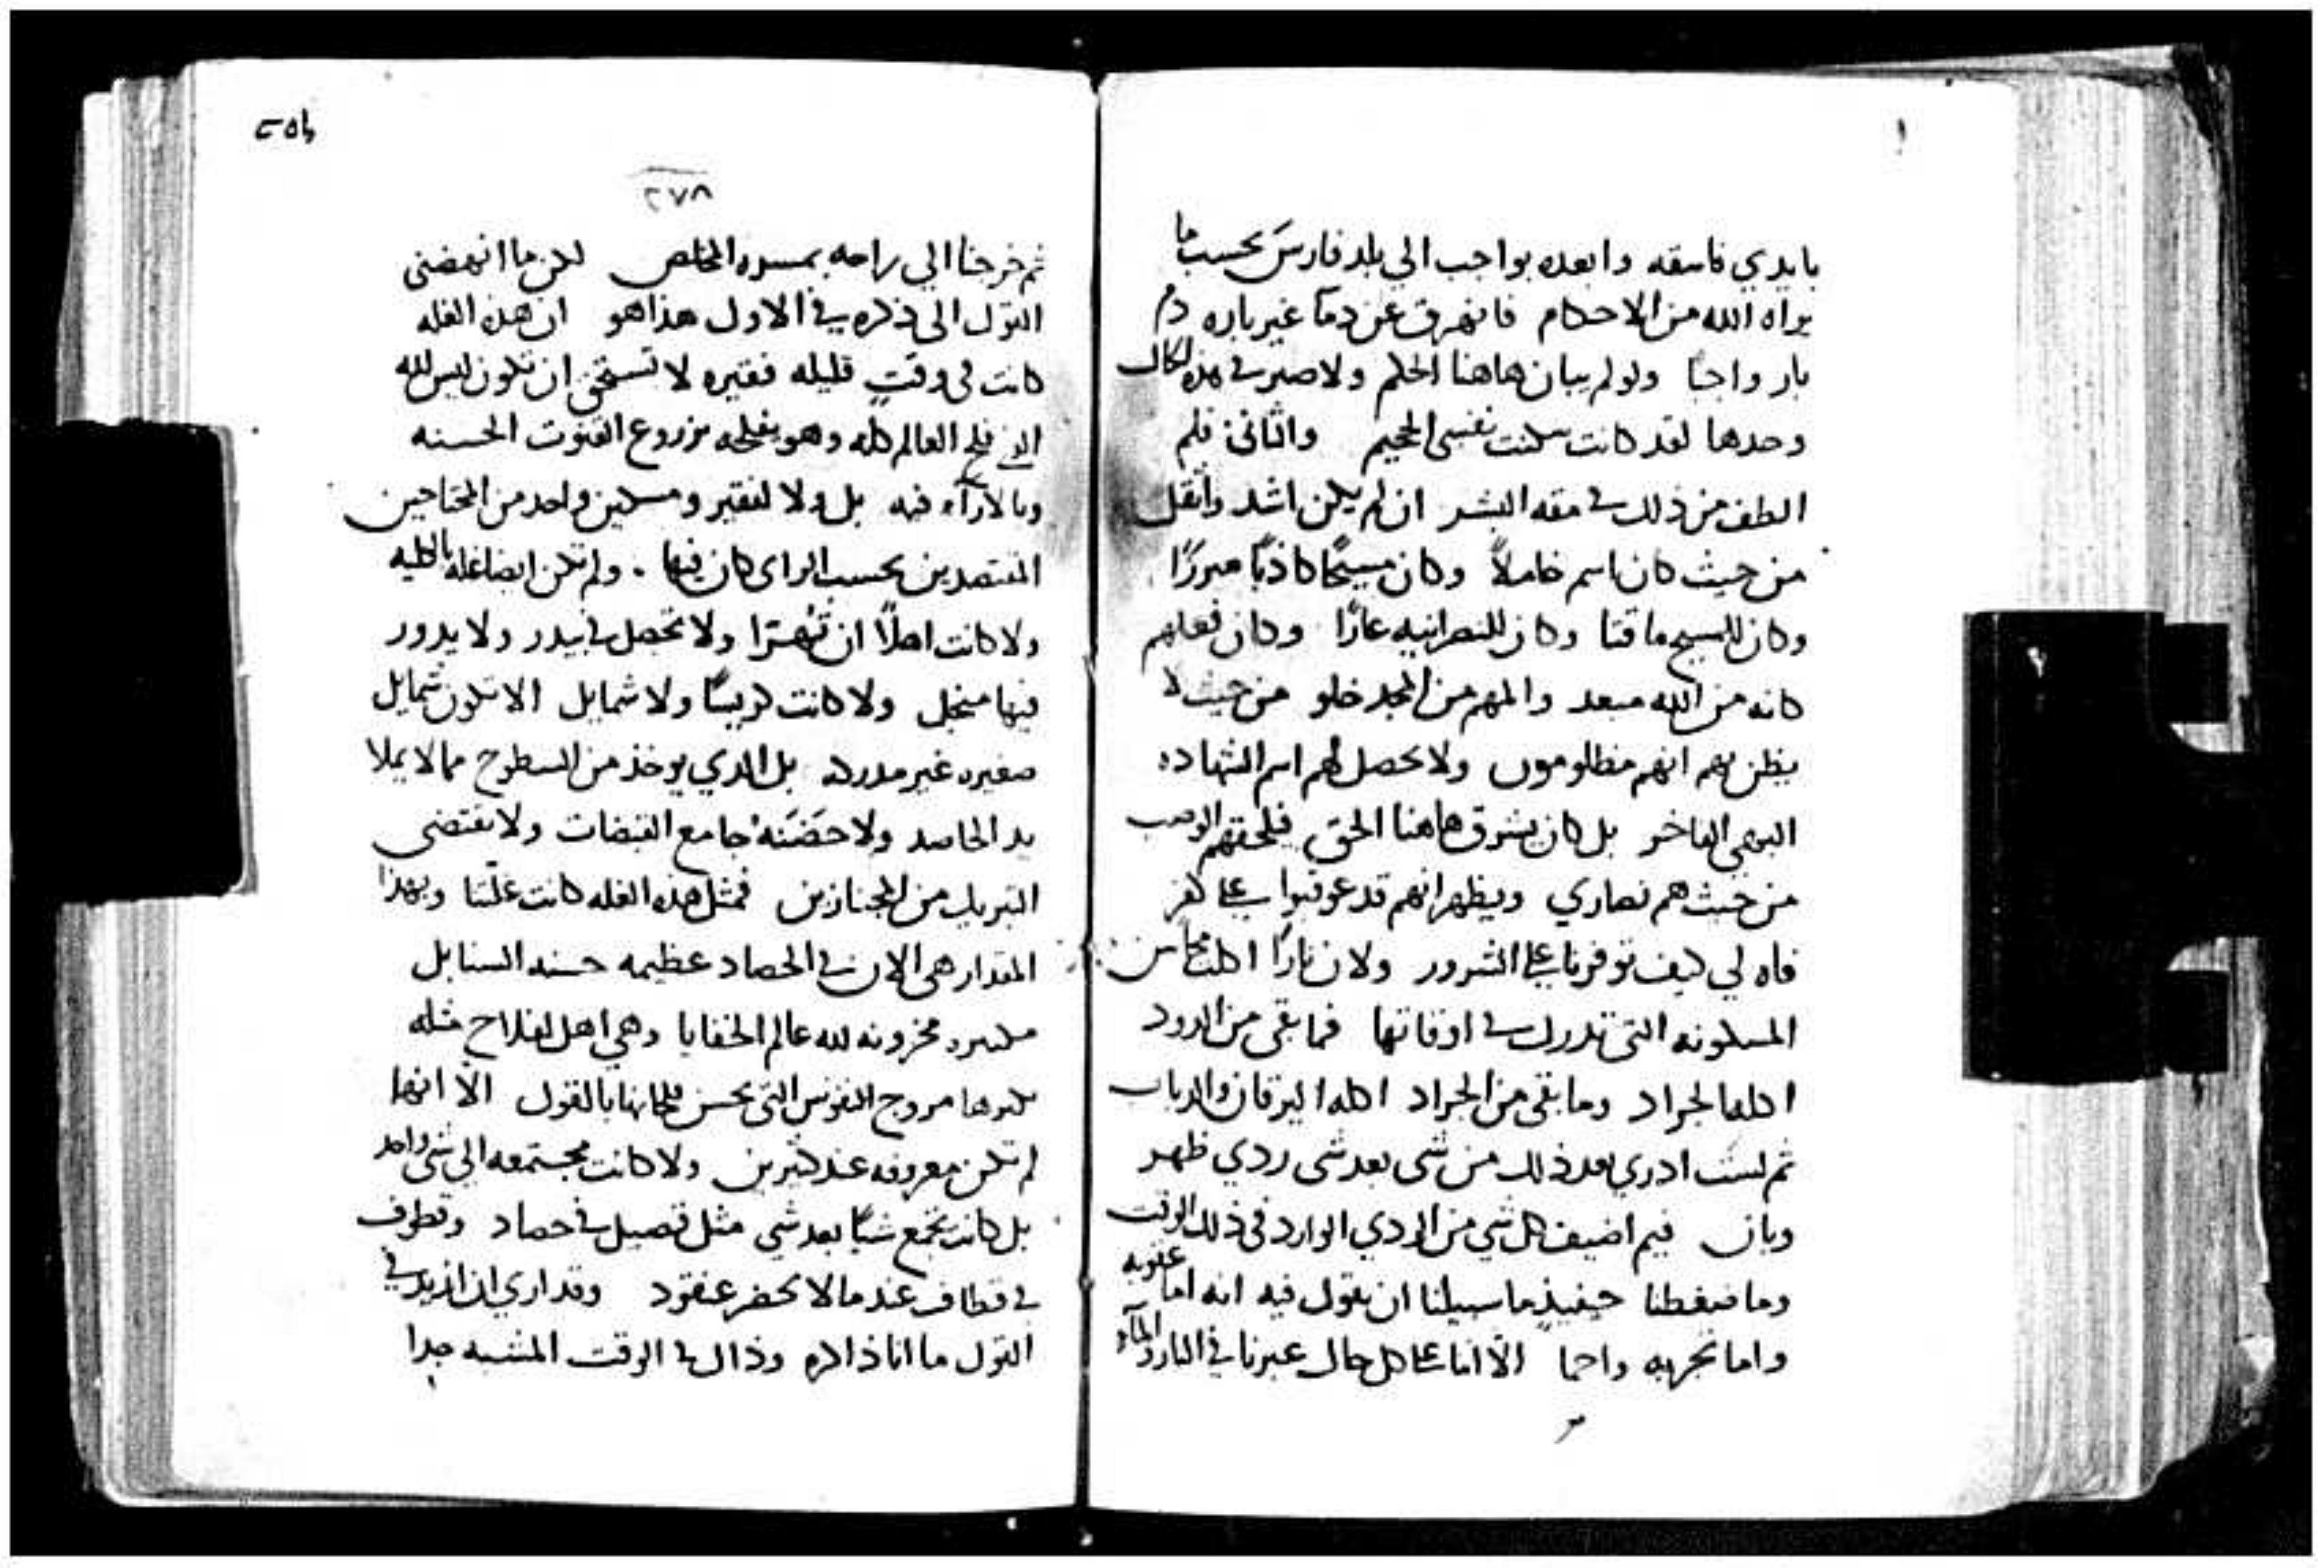 بايدي فاسقه وابعده بواجب الي بلد فارسَ بحسب ما
يراه الله من الاحكام فانهرق عن دمآ غير باره دم
بار واحدا ولو لم يبان هاهنا الحلم ولا صبر في هذه الحال
وحدها لقد كانت سكنت نفسي الجحيم والثاني فلم
الطف من ذلك في مقه البشر ان لم يكن اشد واثقل
من حيث كان اسم خاملاً وكان مسيحًا كاذبًا مبررًا
وكان للمسيح ماقتا وكان للنصرانيه عارًا وكان فعلهم
كانه من الله مبعد والمهم من المجد خلو من حيث لا
يظن بهم انهم مظلومون ولا يحصل لهم اسم الشهاده
البهي الفاخر بل كان يشرق هاهنا الحق فلحقهم الوصب
من حيث هم نصاري ويظهر انهم قد عوقبوا على كفر
فاه لي كيف توفرنا على الشرور ولان نارًا اكلت محاسن
المسكونه التي تدرك في اوقاتها فما بقي من الدود
اكله الجراد وما بقى من الجراد اكله اليرقان والدباب
ثم لست ادري بعد ذلك من شى بعد شى ردي ظهر
وبان فيم اضيف كل شي من الردي الوارد في ذلك الوقت
وما ضغطنا حينيذٍ ما سبيلنا ان نقول فيه انه اما عقوبه
واما تجربه واحما الا انا على كل حال عبرنا في النار والمآء
٢٧٨
ثم خرجنا الي راحه بمسره المخلص لكن ما انهضنى
القول الى ذكره في الاول هذا هو ان هذه الغله
كانت في وقتٍ قليله فقيره لا تستحق ان تكون ليس لله
الذي فلح العالم كله وهو يفلحه بزروع القنوت الحسنه
وبالارآء فيه بل ولا لفقير ومسكين واحد من المحتاجين
المقتصدين بحسب الراي كان فيها. ولم تكن ايضا غله بالكليه
ولا كانت اهلاً ان تُهْترا ولا تحصل في بيدر ولا يدور
فيها منجل ولا كانت كريسًا ولا شمايل الا تكون شمايل
صغيره غير مدركه بل الدي يوخذ من السطوح مما لا يملا
يد الحاصد ولا حَضَنَهُ جامع القبضات ولا يقتضى
التبريك من المجتازين فمثل هذه الغله كانت غلّتنا وبهذا
المقدار هي الان في الحصاد عظيمه حسنه السنابل
مخزونه لله عالم الخفايا وهي اهل لفلاح مثله
مروج النفوس التى يحسن بالقول الّا انها
لم تكن معروفه عند كثيرين ولا كانت مجتمعه الى شى واحد
بل كانت تجمع شيًا بعد شي مثل قصيل في حصاد وقطوف
في قطاف عند ما لا يحضر عنقود وقد اري ان ازيد في
القول ما انا ذاكره وذاك في الوقت المشبه جدا